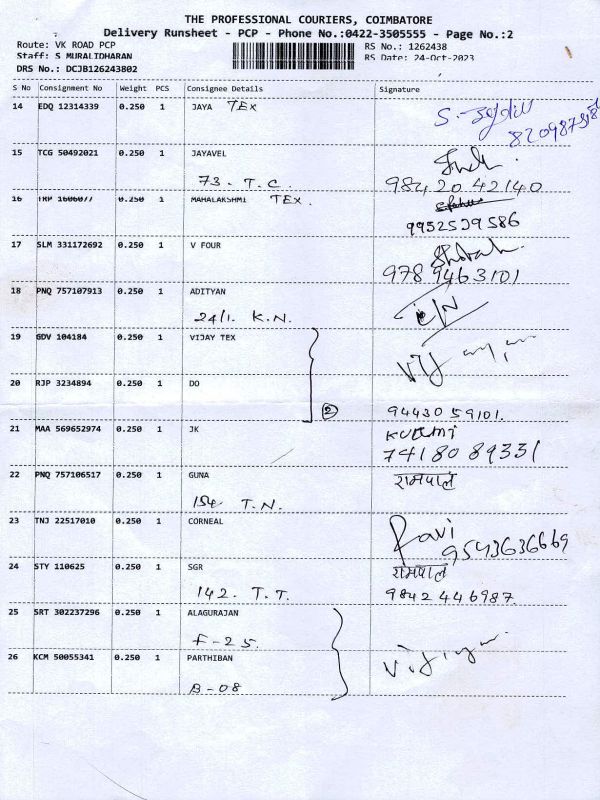 THE PROFESSIONAL COURIERS, COIMBATORE
Delivery Runsheet - PCP - Phone No.:0422-3505555 - Page No.:2
Route: VK ROAD PCP RS No.: 1262438
Staff: S MURALIDHARAN RS Date: 24-Oct-2023
DRS No.: DCJB126243802
S No Consignment No Weight PCS Consignee Details Signature
14 EDQ 12314339 0.250 1 JAYA TEX
15 TCG 50492021 0.250 1 JAYAVEL
73. T.C. 98420 42140
16 TRP 1606077 0.250 1 MAHALAKSHMI TEX.
9952539586
17 SLM 331172692 0.250 1 V FOUR
9789463101
18 PNQ 757107913 0.250 1 ADITYAN
24/1. K.N.
19 GDV 104184 0.250 1 VIJAY TEX
20 RJP 3234894 0.250 1 DO
2 94430 59101.
21 MAA 569652974 0.250 1 JK
74180 89331
22 PNQ 757106517 0.250 1 GUNA रामपाल
154. T.N.
23 TNJ 22517010 0.250 1 CORNEAL Ravi
9543636669
24 STY 110625 0.250 1 SGR रामपाल
142. T.T. 9842446987.
25 SRT 302237296 0.250 1 ALAGURAJAN
F-25.
26 KCM 50055341 0.250 1 PARTHIBAN
B-08